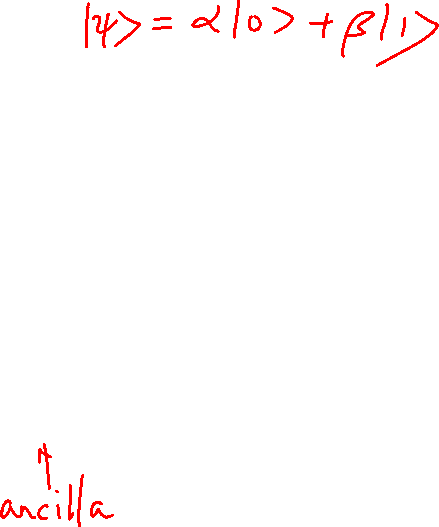 |ψ> = α|0> + β|1>
ancilla